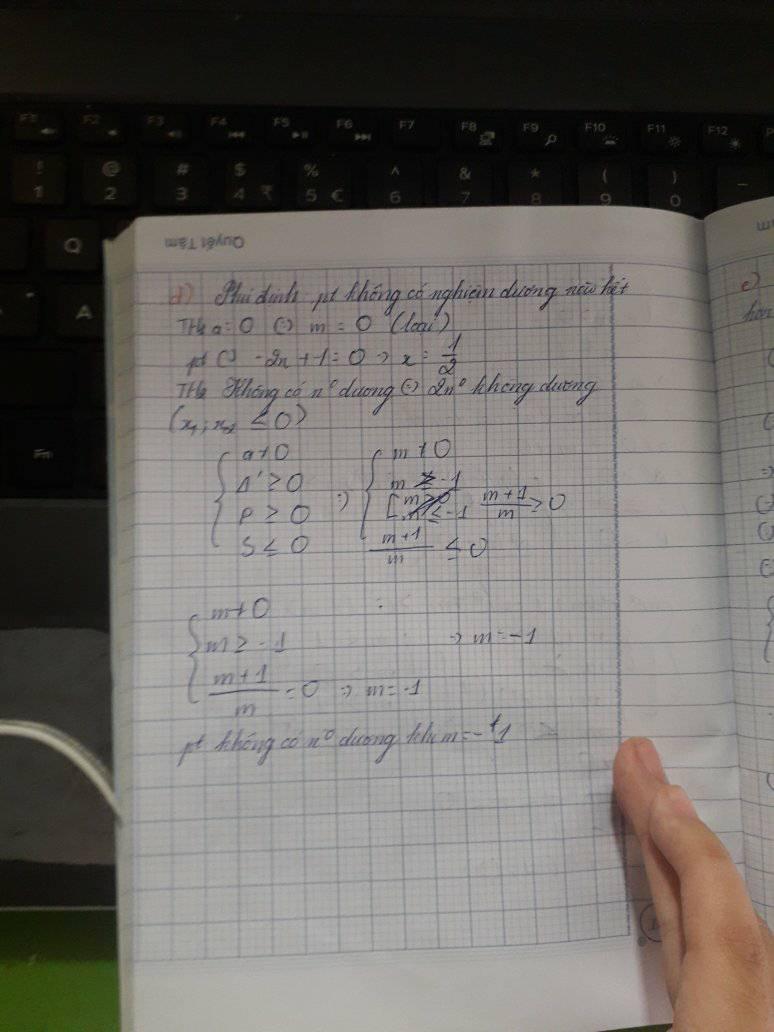 F1 F2 F3 F4 F5 F6 F7 F8 F9 F10 F11 F12
! @ # $ % ^ & * ( ) _
1 2 3 4 ₹ 5 € 6 7 8 9 0
Q
A
Fn
Quyết Tâm
d) Phủ định pt không có nghiệm dương nếu hết
TH1 a = 0 (=) m = 0 (loại)
pt (=) -2x + 1 = 0 => x = 1/2
TH2 Không có n° dương (=) 2n° không dương
(x1; x2 ≤ 0)
{ a ≠ 0
Δ' ≥ 0
P ≥ 0
S ≤ 0
=) { m ≠ 0
m ≥ -1
[ m > 0
m ≤ -1
m+1/m ≥ 0
m+1/m ≤ 0
{ m ≠ 0
m ≥ -1 => m = -1
m+1/m = 0 => m = -1
pt không có n° dương khi m = -1
c)